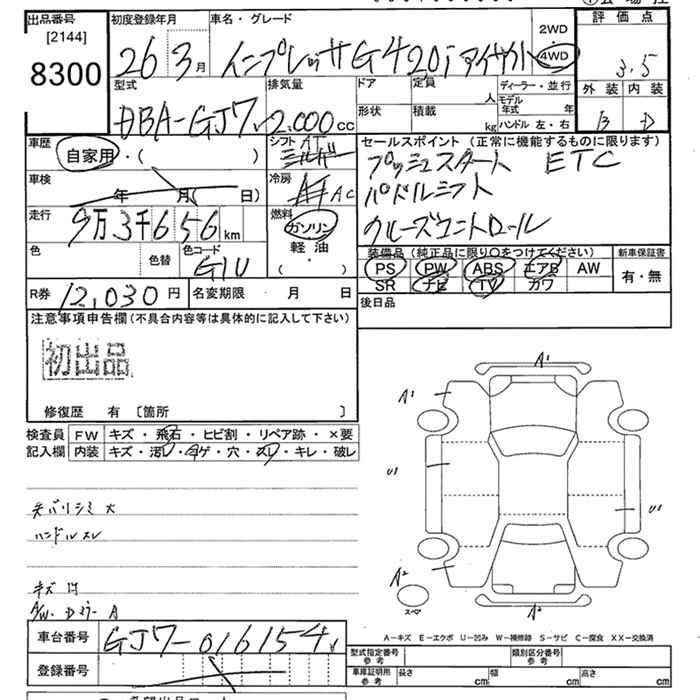 出品番号 [2144] 8300
初度登録年月 26 3月
車名・グレード インプレッサ G4 20i アイサイト
2WD 4WD
評価点 3.5
外装 内装
B D
型式 DBA-GJ7
排気量 2.000 cc
ドア 形状
定員 人
積載 kg
ディーラー・並行
モデル年式 年
ハンドル 左・右
車歴 自家用・( )
シフト AT
セールスポイント (正常に機能するものに限ります)
プッシュスタート ETC
パドルシフト
クルーズコントロール
車検 年 月( 日)
冷房 AC
走行 9万3千656 km
燃料 ガソリン 軽油 ( ・ )
色 色替 色コード G1U
装備品 (純正品に限り○をつけてください)
PS PW ABS エアB AW
SR ナビ TV カワ
新車保証書 有・無
R券 12,030円
名変期限 月 日
後日品
注意事項申告欄 (不具合内容等は具体的に記入して下さい)
初出品
修復歴 有 〔箇所 〕
検査員記入欄
FW キズ・飛石・ヒビ割・リペア跡・×要
内装 キズ・汚レ・コゲ・穴・スレ・キレ・破レ
天バリシミ大
ハンドルスレ
A1
A1
U1
U1
A2
A2
スペア
A-キズ E-エクボ U-凹み W-補修跡 S-サビ C-腐食 XX-交換済
車台番号 GJ7-016154
登録番号
型式指定番号 参考
類別区分番号 参考
車庫証明用 参考 長さ cm 幅 cm 高さ cm